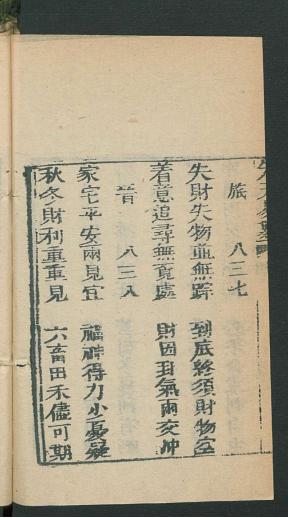 旅 八三七
失財失物並無踪 到底終須財物空
着意追尋無覓處 財因氣兩交冲
晋 八三八
家宅平安兩見宜 福神得力小憂疑
秋冬財利重重見 六畜田禾儘可期